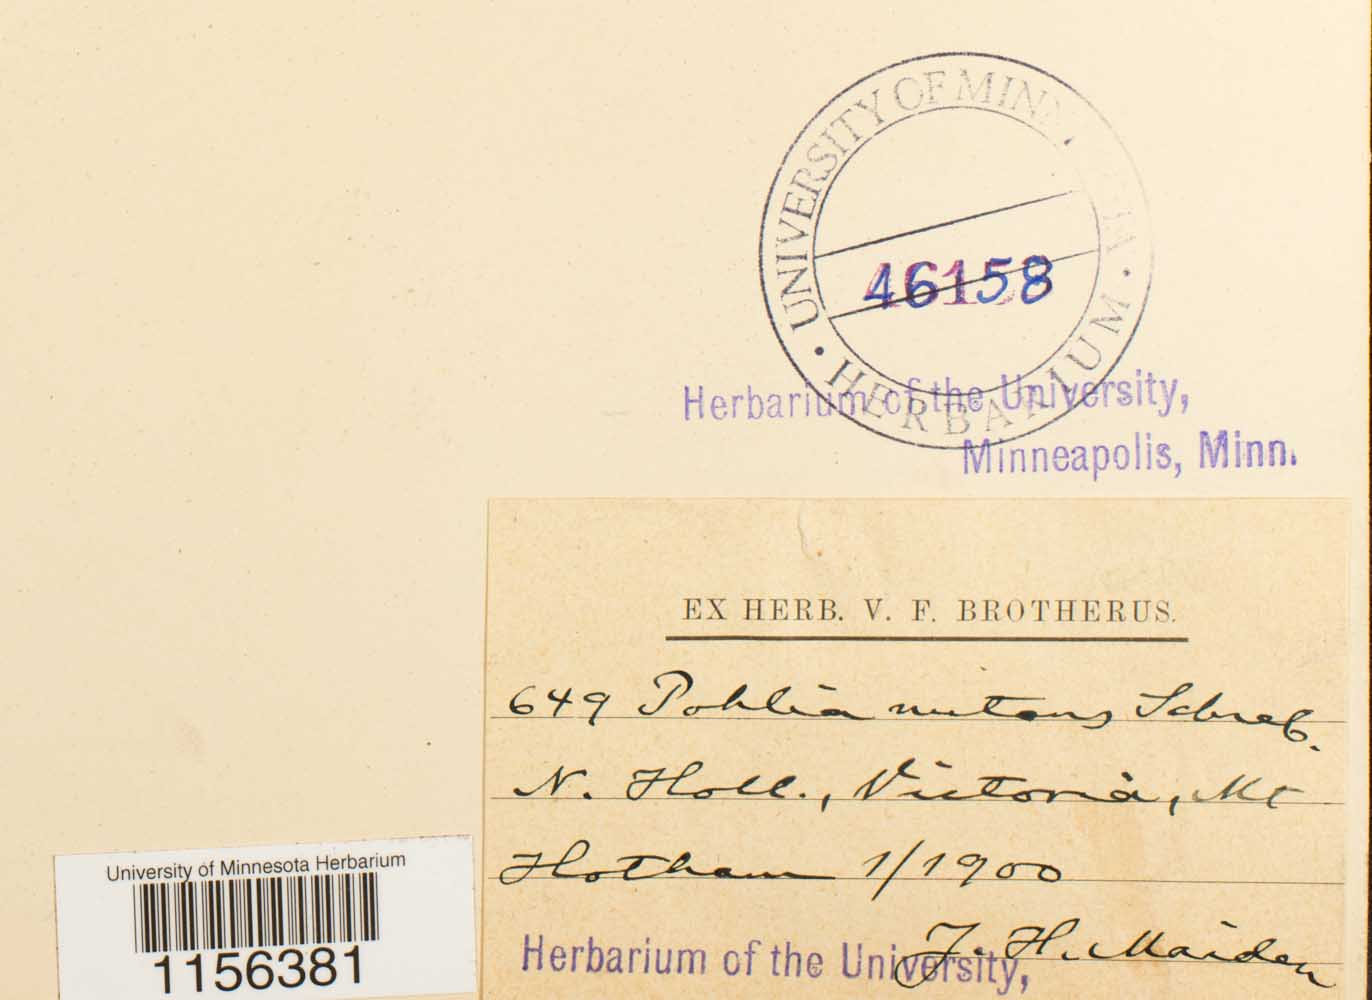 UNIVERSITY OF MINN
HERBARIUM
46158
Herbarium of the University,
Minneapolis, Minn.
EX HERB. V. F. BROTHERUS.
649 Pohlia nutans Schreb.
N. Holl., Victoria, Mt
Hotham 1/1900
J. H. Maiden
Herbarium of the University,
University of Minnesota Herbarium
1156381